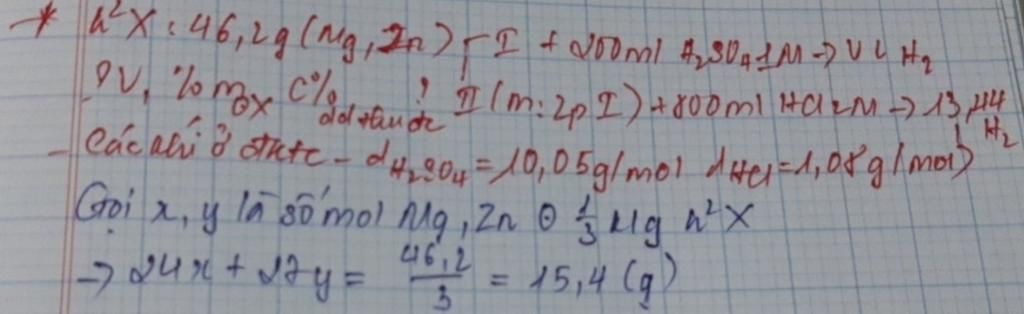 * h²X: 46,2g (Mg, Zn) I + 200ml H₂SO₄ 1M → V L H₂
PV, %mỗX C% dd thu đc ? II (m: 2p I) + 800ml HCl 2M → 13,44 l H₂
- Các khí ở đktc - dH₂SO₄ = 10,05g/mol dHCl = 1,08g/mol
Gọi x, y là số mol Mg, Zn ⊖ 1/3 Mg h²X
→ 24x + 27y = 46,2/3 = 15,4 (g)